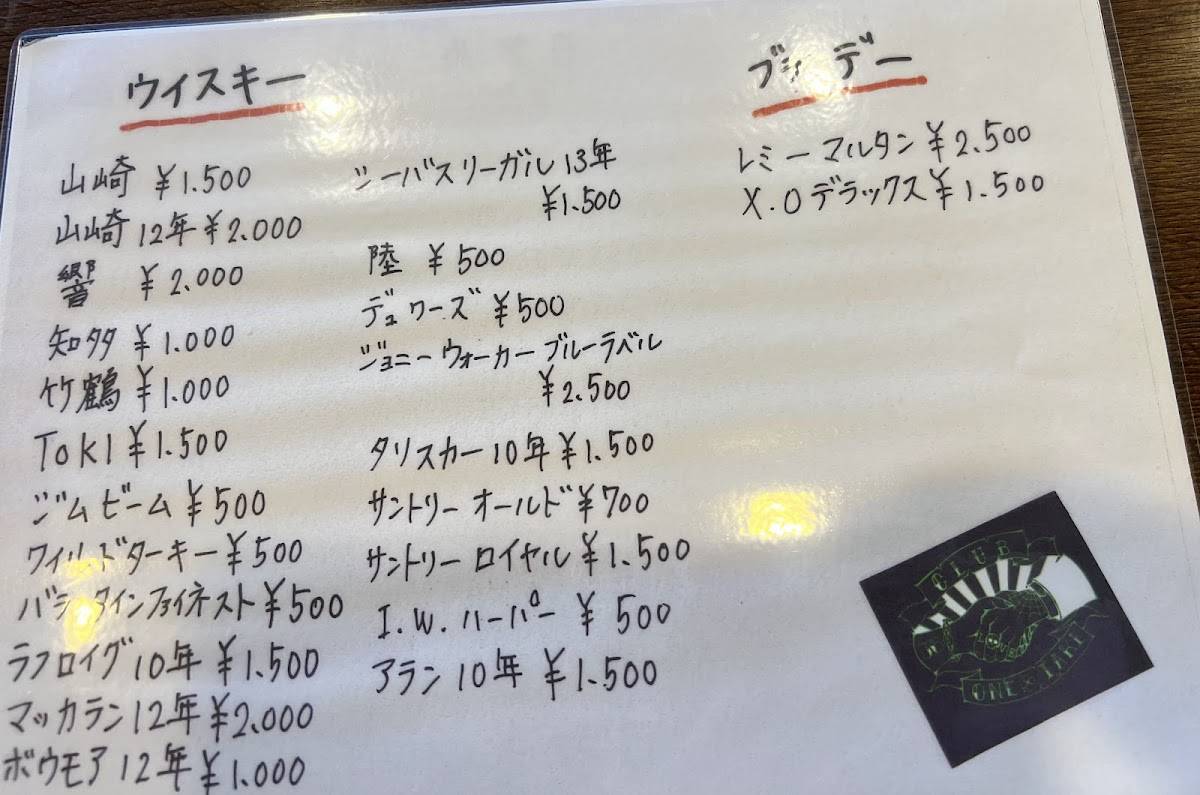 ウイスキー
山崎 ¥1.500
山崎 12年 ¥2.000
響 ¥2.000
知多 ¥1.000
竹鶴 ¥1.000
TOKI ¥1.500
ジムビーム ¥500
ワイルドターキー ¥500
バランタインファイネスト ¥500
ラフロイグ 10年 ¥1.500
マッカラン 12年 ¥2.000
ボウモア 12年 ¥1.000
シーバスリーガル 13年
¥1.500
陸 ¥500
デュワーズ ¥500
ジョニーウォーカー ブルーラベル
¥2.500
タリスカー 10年 ¥1.500
サントリー オールド ¥700
サントリー ロイヤル ¥1.500
I.W.ハーパー ¥500
アラン 10年 ¥1.500
ブランデー
レミーマルタン ¥2.500
X.Oデラックス ¥1.500
CLUB
ONE